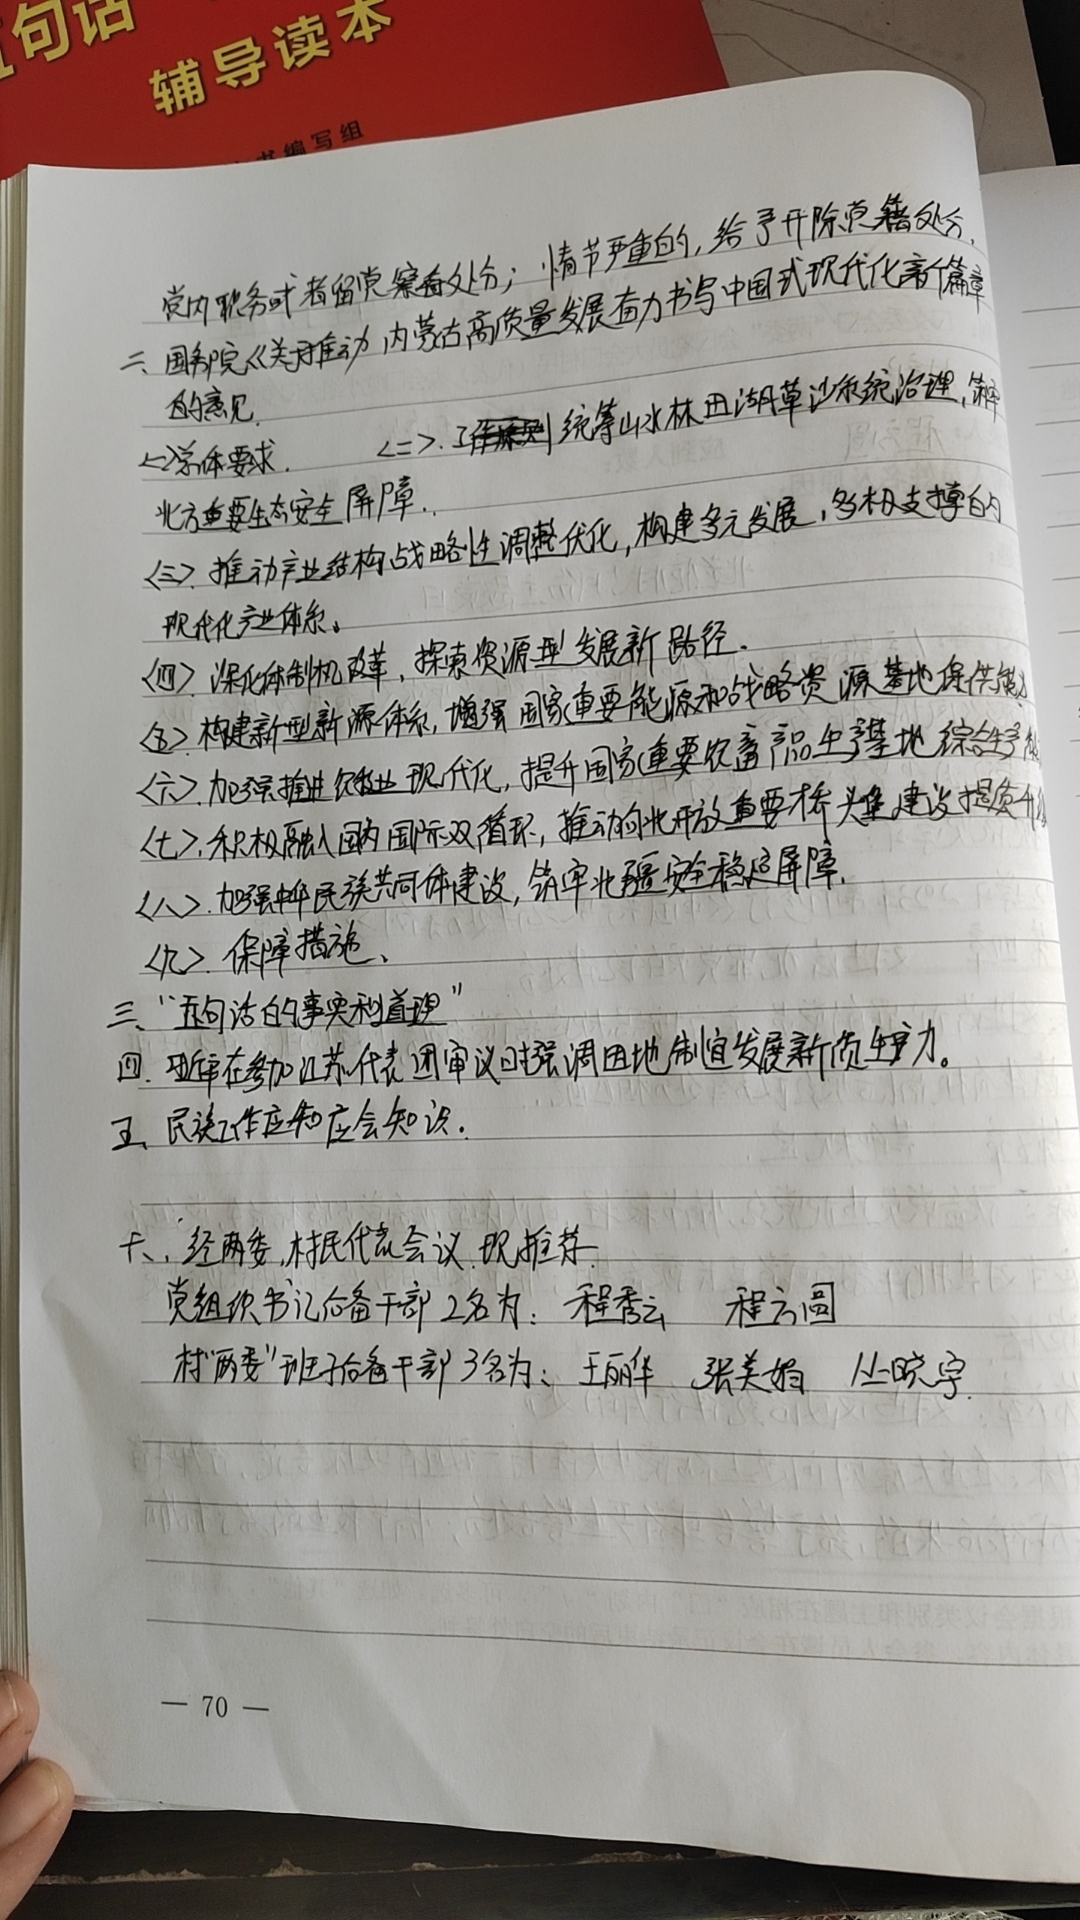 五句话
辅导读本
书编写组
党内职务或者留党察看处分；情节严重的，给予开除党籍处分．
二、国务院《关于推动内蒙古高质量发展奋力书写中国式现代化新篇章
的意见．
<一>总体要求．<二>．统筹山水林田湖草沙系统治理，筑牢
北方重要生态安全屏障．
<三>．推动产业结构战略性调整优化，构建多元发展，多极支撑的
现代化产业体系。
<四>．深化体制机改革，探索资源型发展新路径．
<五>．构建新型新源体系，增强国家重要能源和战略资源基地保供能力
<六>．加强推进农牧业现代化，提升国家重要农畜产品生产基地综合生产能
<七>．积极融入国内国际双循环，推动向北开放重要桥头堡建设提质升级
<八>．加强中华民族共同体建设，筑牢北疆安全稳定屏障．
<九>．保障措施、
三、“五句话的事实和道理”
四．近平在参加江苏代表团审议时强调因地制宜发展新质生产力。
五、民族工作应知应会知识．
十、经两委，村民代表会议．现推荐
党组织书记后备干部2名为：程秀云 程方圆
村“两委”班子后备干部3名为：王丽华 张美娟 丛晓宇．
— 70 —